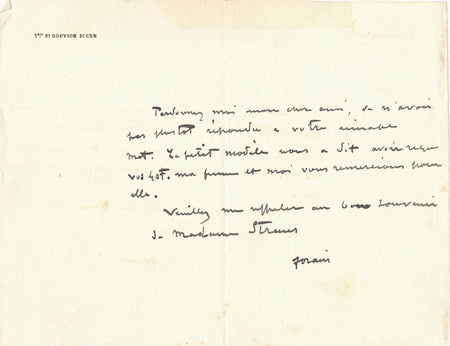 5ᵗᵉʳ Bᵈ GOUVION Sᵗ CYR
Pardonnez moi mon cher ami, de n'avoir
pas plustot répondu a votre aimable
mot. Le petit modèle nous a dit avoir reçu
vos 40f. ma femme et moi vous remercions pour
elle.
Veuillez me rappeler au bon souvenir
de Madame Straus
forain